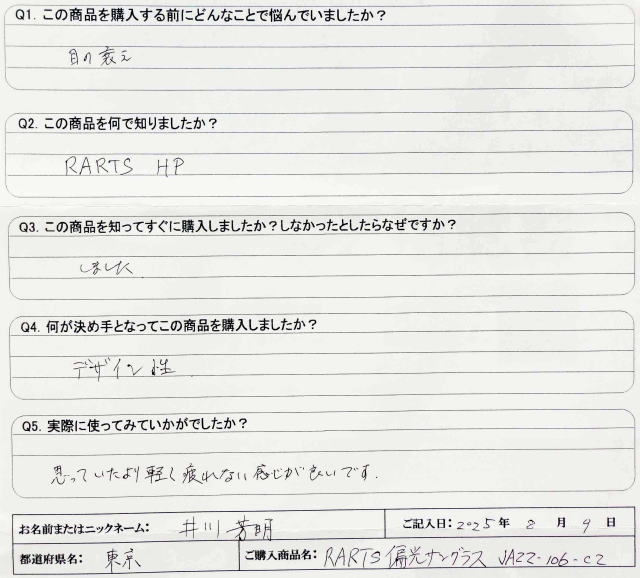 Q1. この商品を購入する前にどんなことで悩んでいましたか？
目の衰え
Q2. この商品を何で知りましたか？
RARTS HP
Q3. この商品を知ってすぐに購入しましたか？しなかったとしたらなぜですか？
しました
Q4. 何が決め手となってこの商品を購入しましたか？
デザイン性.
Q5. 実際に使ってみていかがでしたか？
思っていたより軽く疲れない感じが良いです.
お名前またはニックネーム： 井川 芳明 ご記入日：2025年 8 月 9 日
都道府県名： 東京 ご購入商品名：RARTS 偏光サングラス JAZZ-106-C2